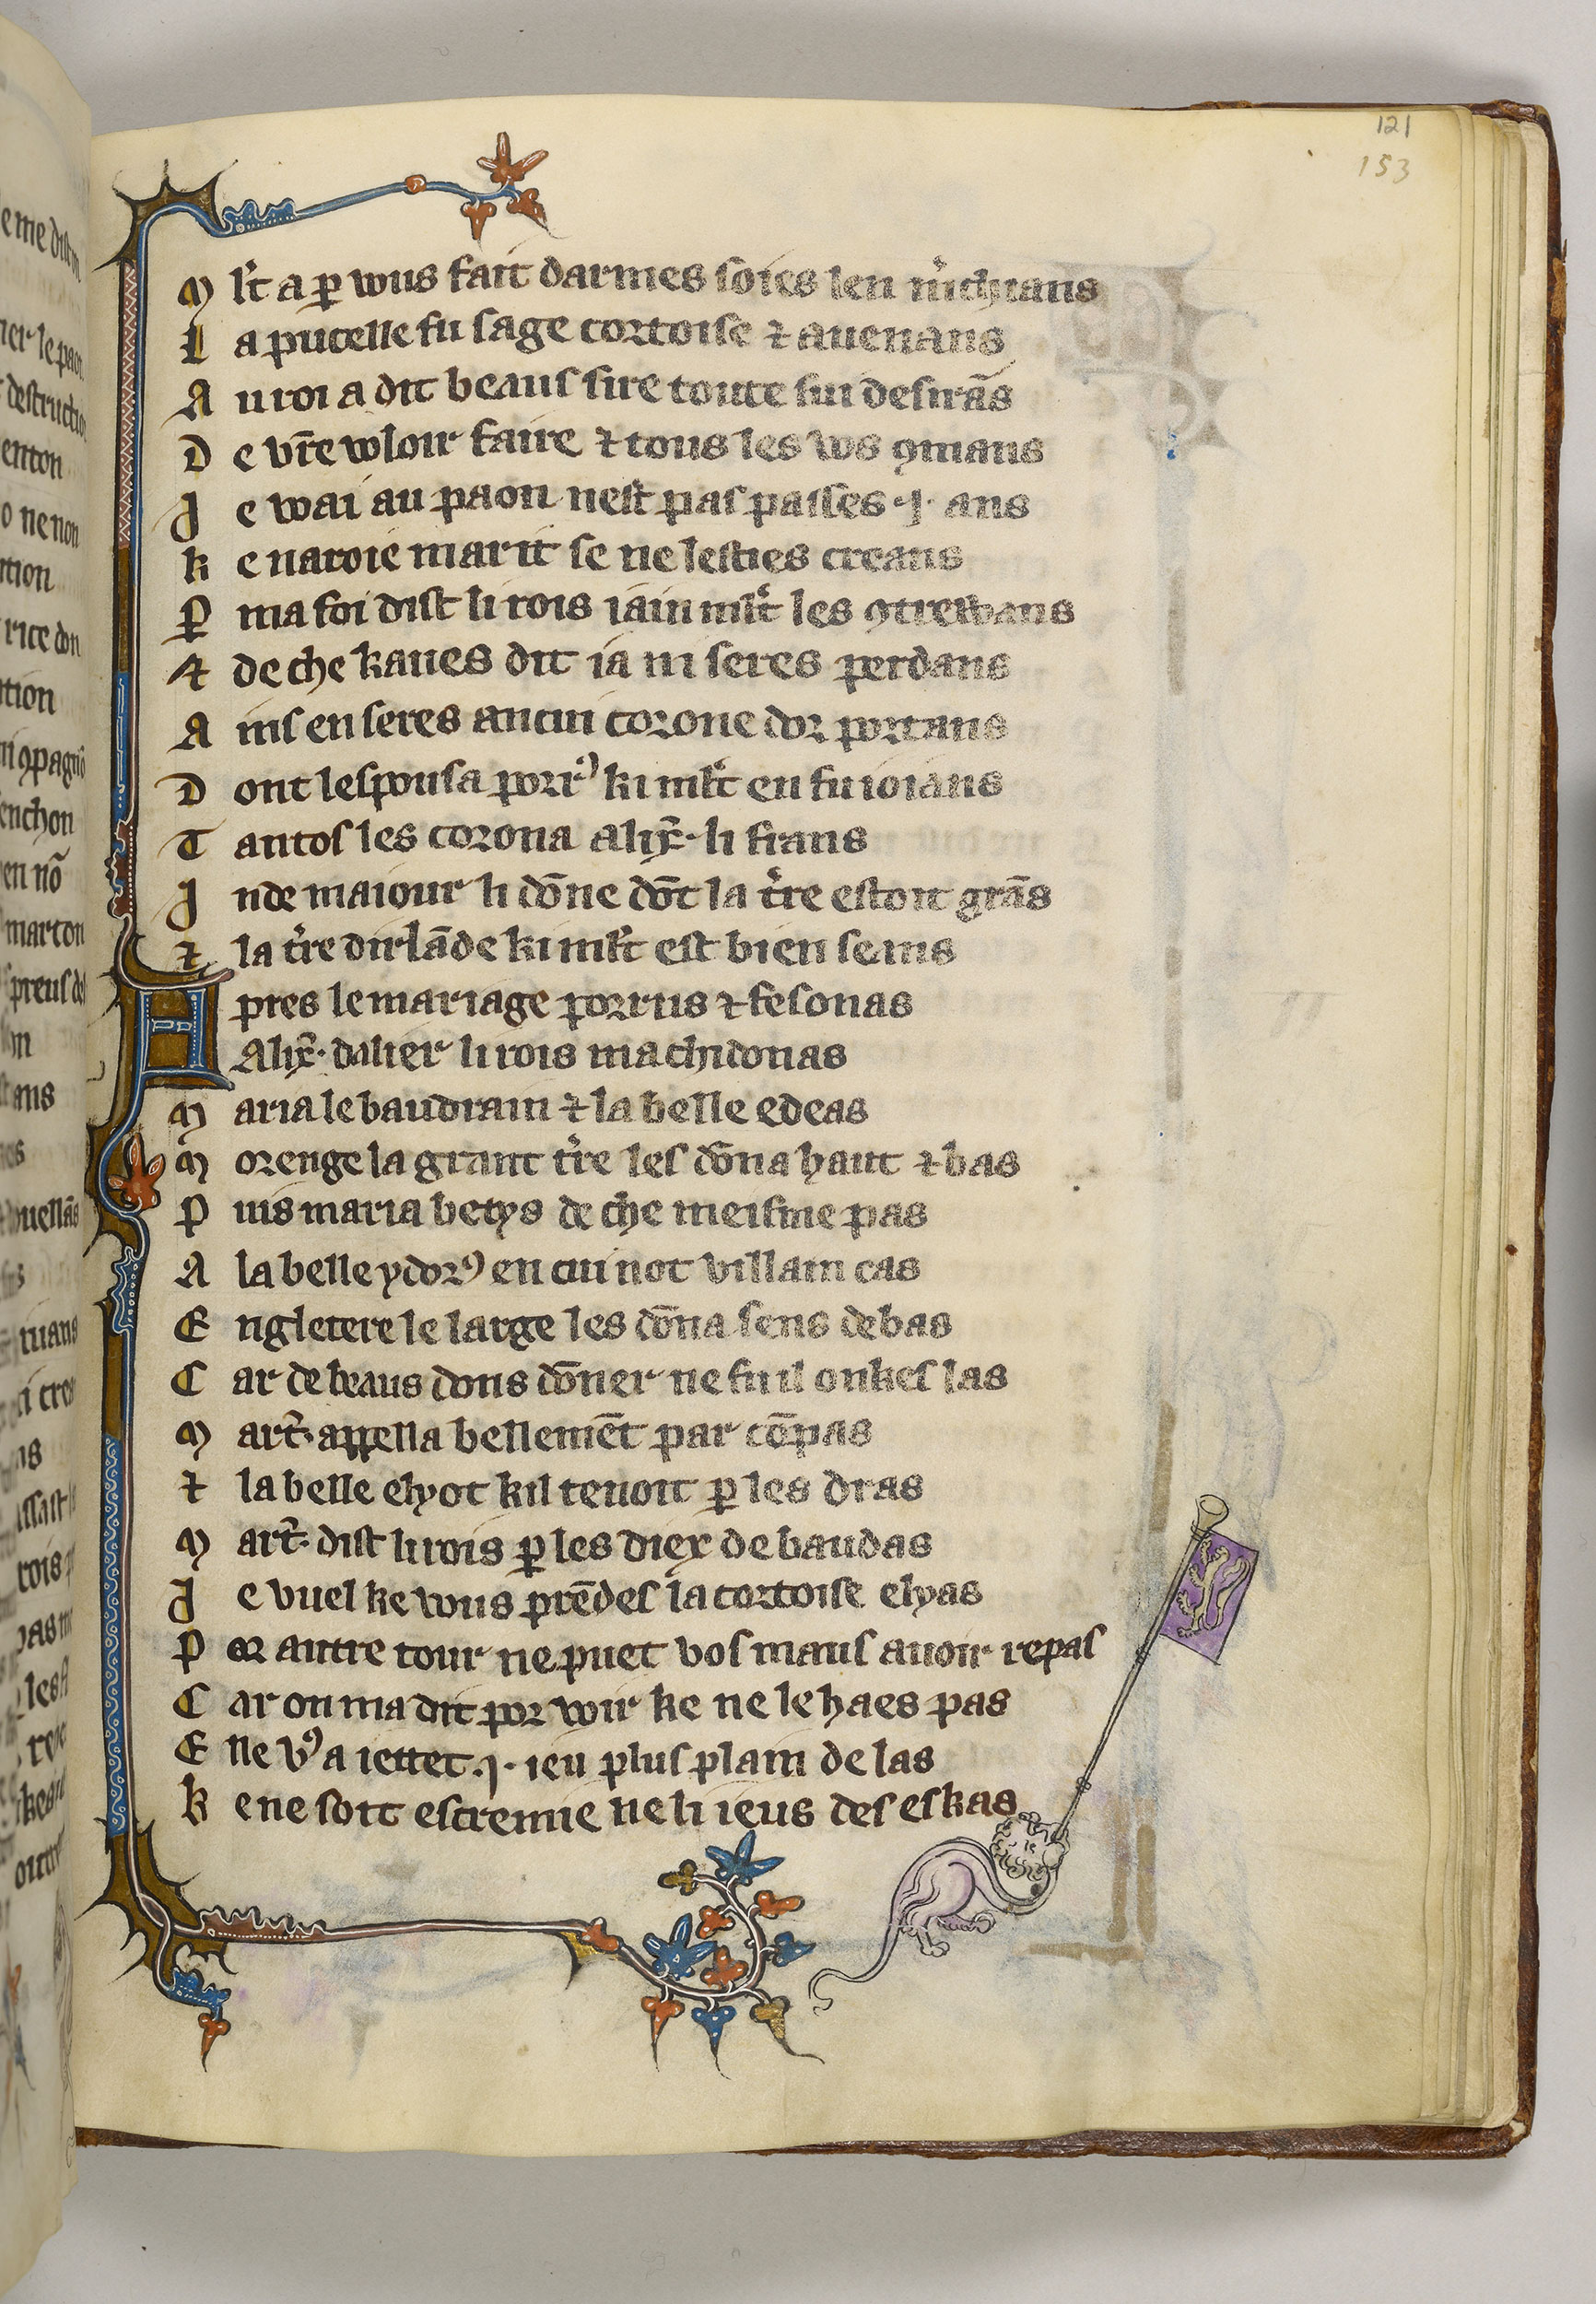 121
153
M lt a ꝑ wus fait darmes soies len m̃chians
L a pucelle fu sage cortoise ⁊ auenans
A u roi a dit beaus sire toute sui desirãs
D e vr̃e wloir faire ⁊ tous les ws ꝯmans
J e wai au paon nest pas passes .j. ans
K e naroie marit se ne lesties creans
P ma foi dist li rois iain ml̃t les ꝯtrewans
⁊ de che kaues dit ia ni seres perdans
A ins en seres ancui corone dor portans
D ont lespousa porrꝰ ki ml̃t en fu ioians
T antos les corona alix̃. li frans
J nde maiour li dõne dõt la t̃re estoit grãs
⁊ la t̃re dirlãde ki ml̃t est bien seans
A pres le mariage porrus ⁊ fesonas
Alix̃. dalier li rois machidonas
M aria le baudrain ⁊ la belle edeas
M orenge la grant t̃re les dõna haut ⁊ bas
P uis maria betys de che meisme pas
A la belle ydorꝰ en cui not villain cas
E ngletere le large les dõna sens debas
C ar de beaus dons dõner ne fu il onkes las
M art̃. appella bellemẽt par cõpas
⁊ la belle elyot kil tenoit ꝑ les dras
M art̃. dist li rois ꝑ les diex de baudas
J e vuel ke wus prẽdes la cortoise elyas
P or autre tour ne puet vos maus auoir repas
C ar on ma dit por voir ke ne le haes pas
E lle vꝰ a iettet .j. ieu plus plain de las
K e ne soit escremie ne li ieus des eskas